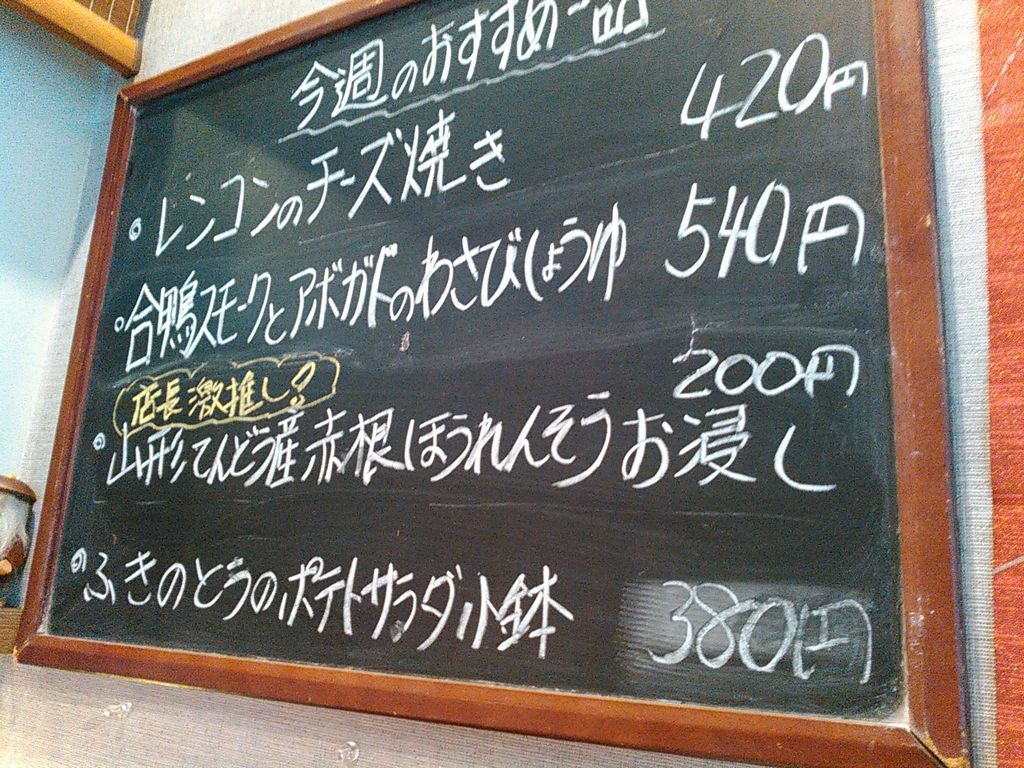 今週のおすすめ一品
・レンコンのチーズ焼き 420円
・合鴨スモークとアボガドのわさびしょうゆ 540円
店長激推し!
・山形てんどう産赤根ほうれんそうお浸し 200円
・ふきのとうのポテトサラダ小鉢 380円